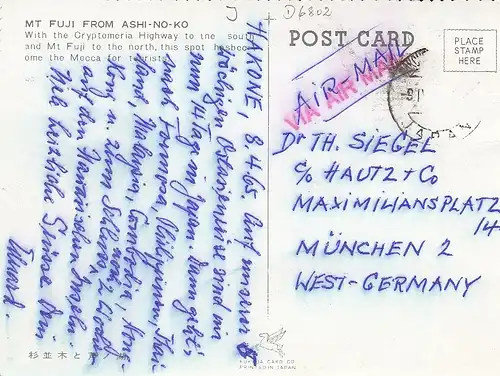 MT FUJI FROM ASHI-NO-KO
With the Cryptomeria Highway to the south
and Mt Fuji to the north, this spot has bec-
ome the Mecca for tourists
J + D6802
POST CARD
PLACE
STAMP
HERE
AIR-MAIL
VIA AIR MAIL
HAKONE, 8.4.65. Auf unserer
Ostasienreise sind wir
nun 14 Tage in Japan. Dann geht's
nach Formosa, Philippinen, Thai-
land, Malaysia, Cambodia, Hong-
kong u. zum Schluss noch 2 Wochen
auf den Hawaiischen Inseln.
Viele herzliche Grüsse Dein
Dr TH. SIEGEL
c/o HAUTZ + Co
MAXIMILIANSPLATZ
14
MÜNCHEN 2
WEST-GERMANY
杉並木と芦ノ湖
FUKUDA CARD CO.
PRINTED IN JAPAN